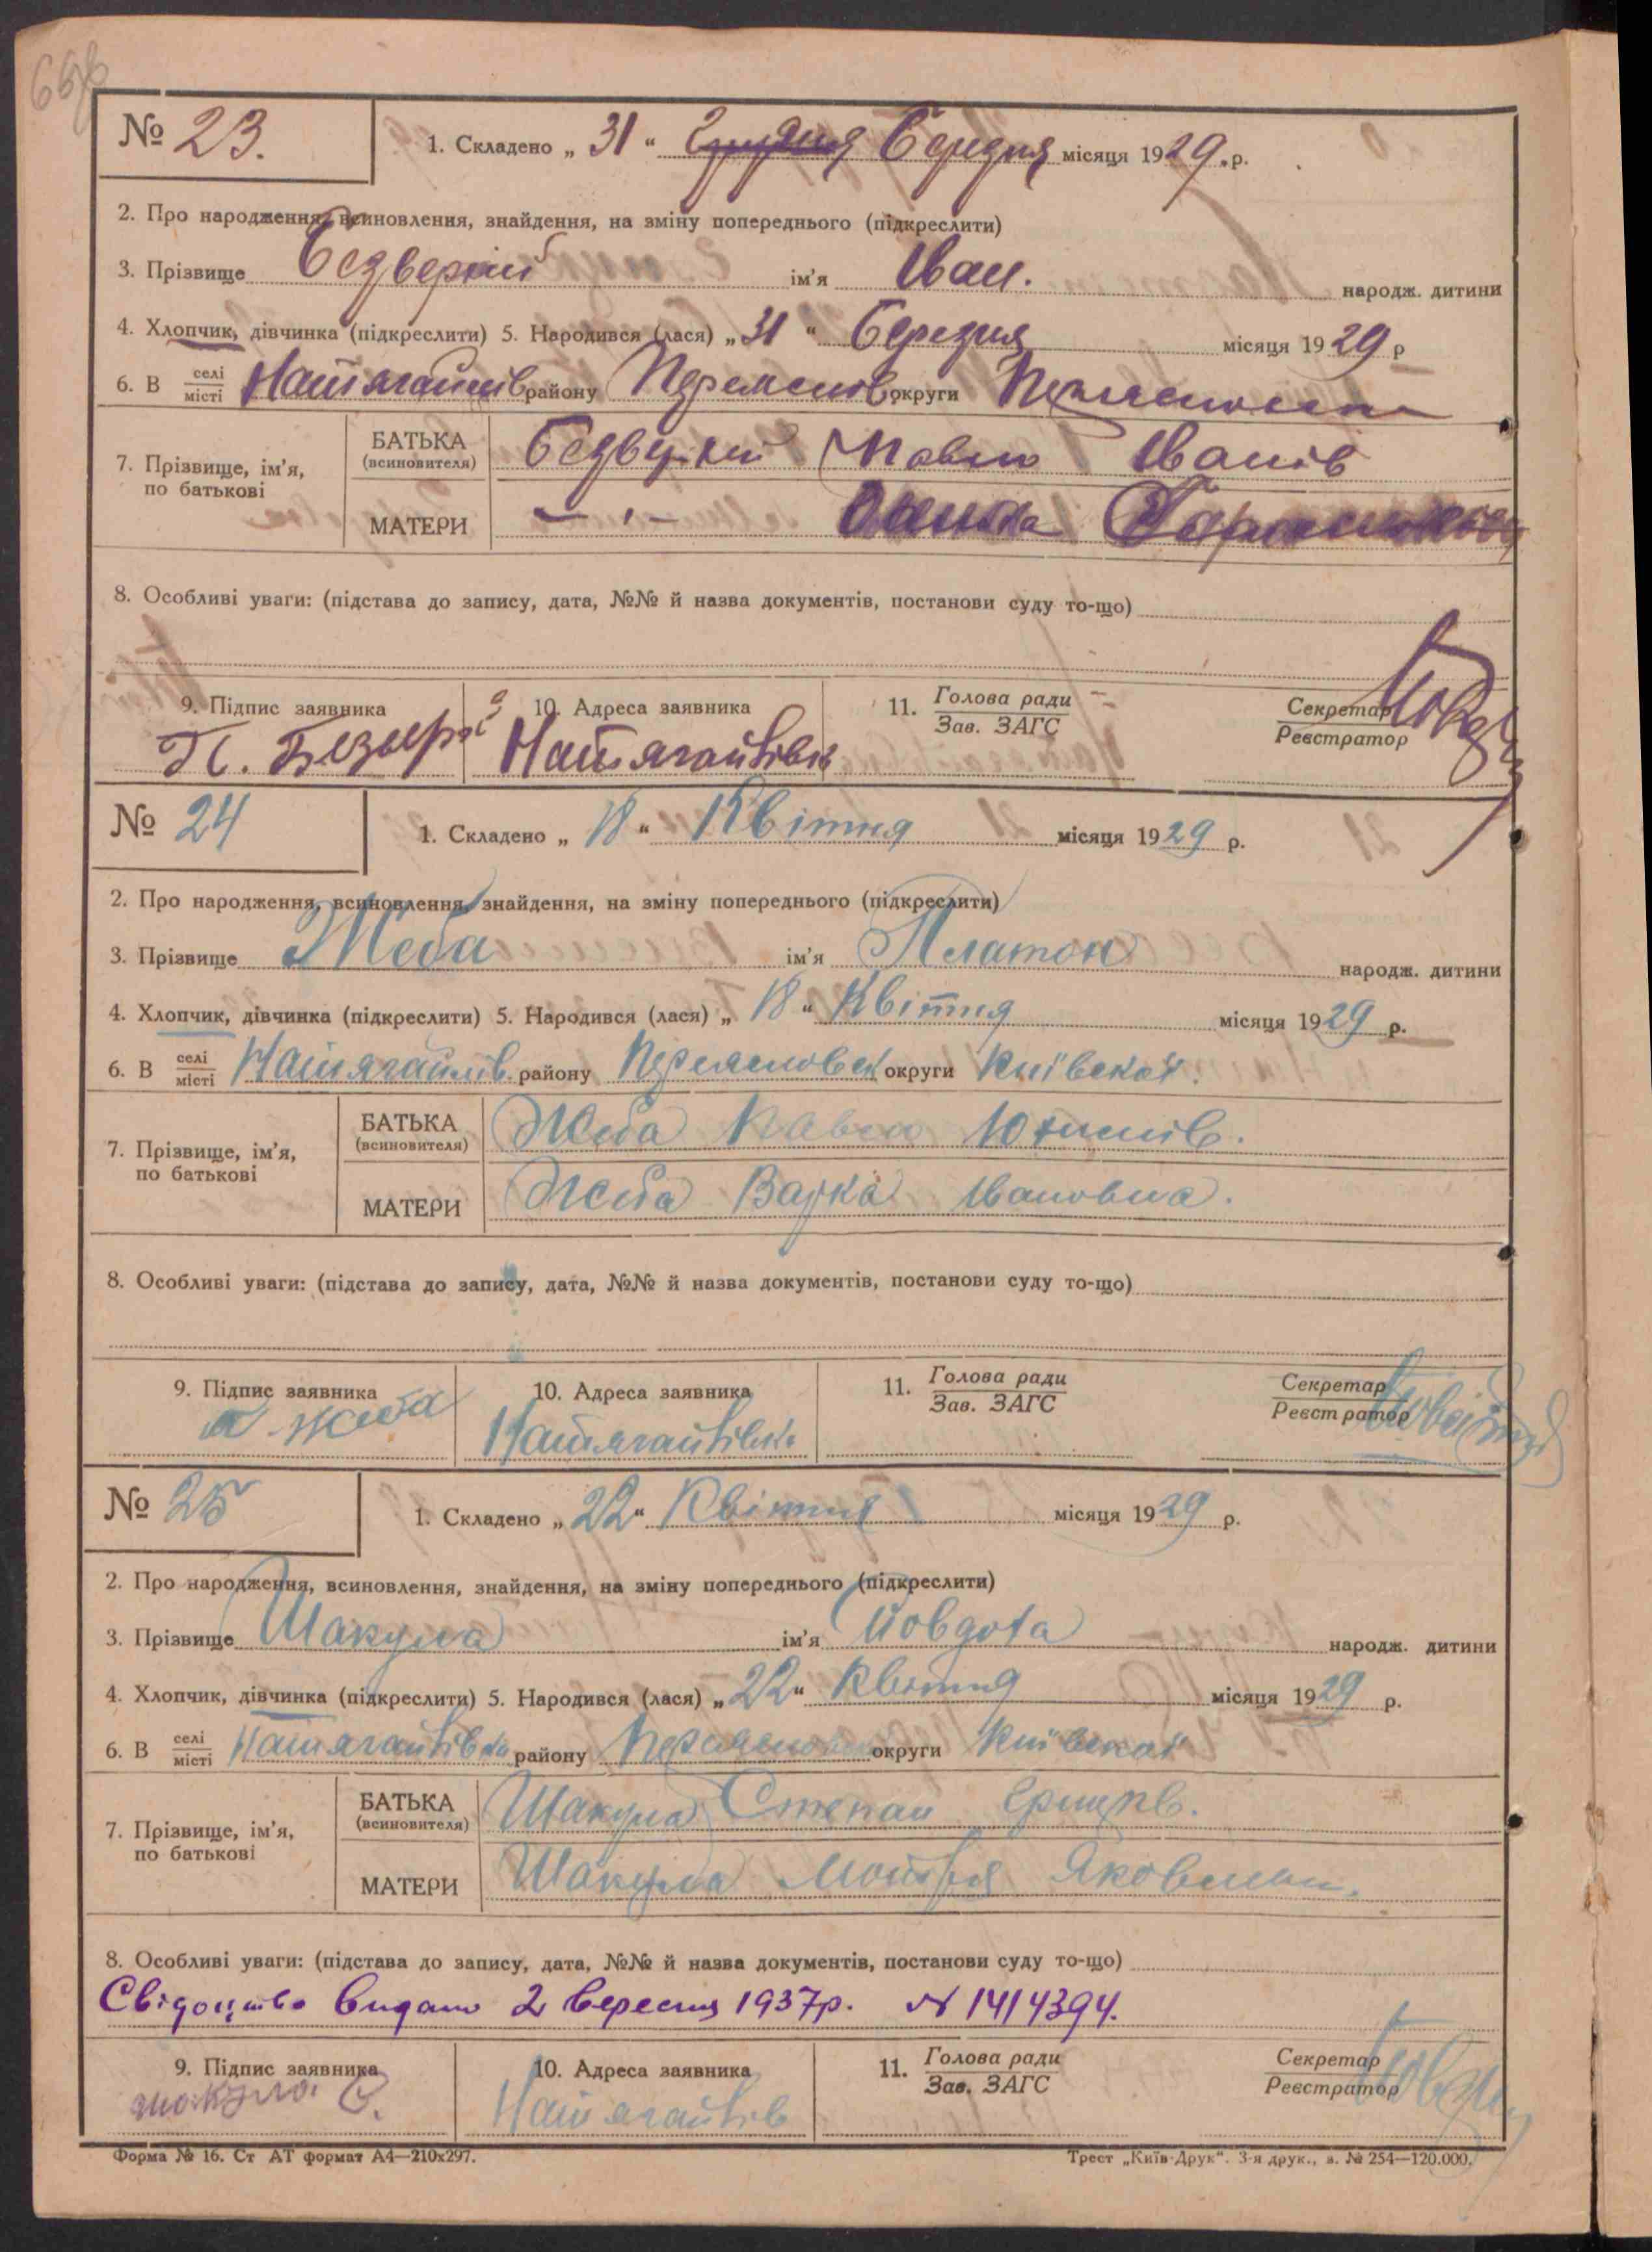 № 23.
1. Складено „ 31 “ Березня місяця 1929 р.
2. Про народження, всиновлення, знайдення, на зміну попереднього (підкреслити)
3. Прізвище ім'я Іван. народж. дитини
4. Хлопчик, дівчинка (підкреслити) 5. Народився (лася) „ 31 “ Березня місяця 1929 р
6. В селі місті району округи
7. Прізвище, ім'я, по батькові
БАТЬКА (всиновителя) Павло Іванів
МАТЕРИ — „ —
8. Особливі уваги: (підстава до запису, дата, №№ й назва документів, постанови суду то-що)
9. Підпис заявника 10. Адреса заявника 11. Голова ради Зав. ЗАГС Секретар Реєстратор
Натягайлівк
№ 24
1. Складено „ 18 “ Квітня місяця 1929 р.
2. Про народження, всиновлення, знайдення, на зміну попереднього (підкреслити)
3. Прізвище Жеба ім'я Платон народж. дитини
4. Хлопчик, дівчинка (підкреслити) 5. Народився (лася) „ 18 “ Квітня місяця 1929 р.
6. В селі місті Натягайлів. району округи Київської.
7. Прізвище, ім'я, по батькові
БАТЬКА (всиновителя) Жеба Павло Юхимів.
МАТЕРИ Жеба Варка Івановна.
8. Особливі уваги: (підстава до запису, дата, №№ й назва документів, постанови суду то-що)
9. Підпис заявника 10. Адреса заявника 11. Голова ради Зав. ЗАГС Секретар Реєстратор
Жеба Натягайлівка
№ 25
1. Складено „ 22 “ Квітня місяця 1929 р.
2. Про народження, всиновлення, знайдення, на зміну попереднього (підкреслити)
3. Прізвище Шакула ім'я Йовдоха народж. дитини
4. Хлопчик, дівчинка (підкреслити) 5. Народився (лася) „ 22 “ Квітня місяця 1929 р.
6. В селі місті Натягайлівка району округи Київської
7. Прізвище, ім'я, по батькові
БАТЬКА (всиновителя) Шакула Степан
МАТЕРИ Шакула Мотря Яковлевн.
8. Особливі уваги: (підстава до запису, дата, №№ й назва документів, постанови суду то-що)
Свідоцтво видано 2 вересня 1937р. № 1414394.
9. Підпис заявника 10. Адреса заявника 11. Голова ради Зав. ЗАГС Секретар Реєстратор
шакула С. Натягайлів
Форма № 16. Ст АТ формат А4—210х297. Трест „Київ-Друк“. 3-я друк., з. № 254—120.000.